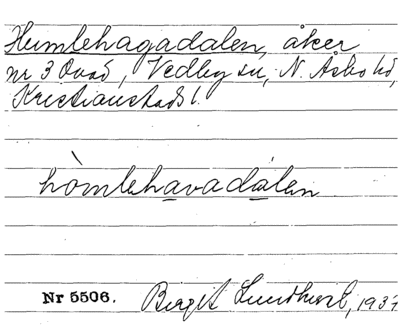 Humlehagadalen, åker
nr 3 Ovad, Vedby sn, N. Åsbo hd,
Kristianstads l.
hòmlehavadálen
Nr 5506. Birgit 193